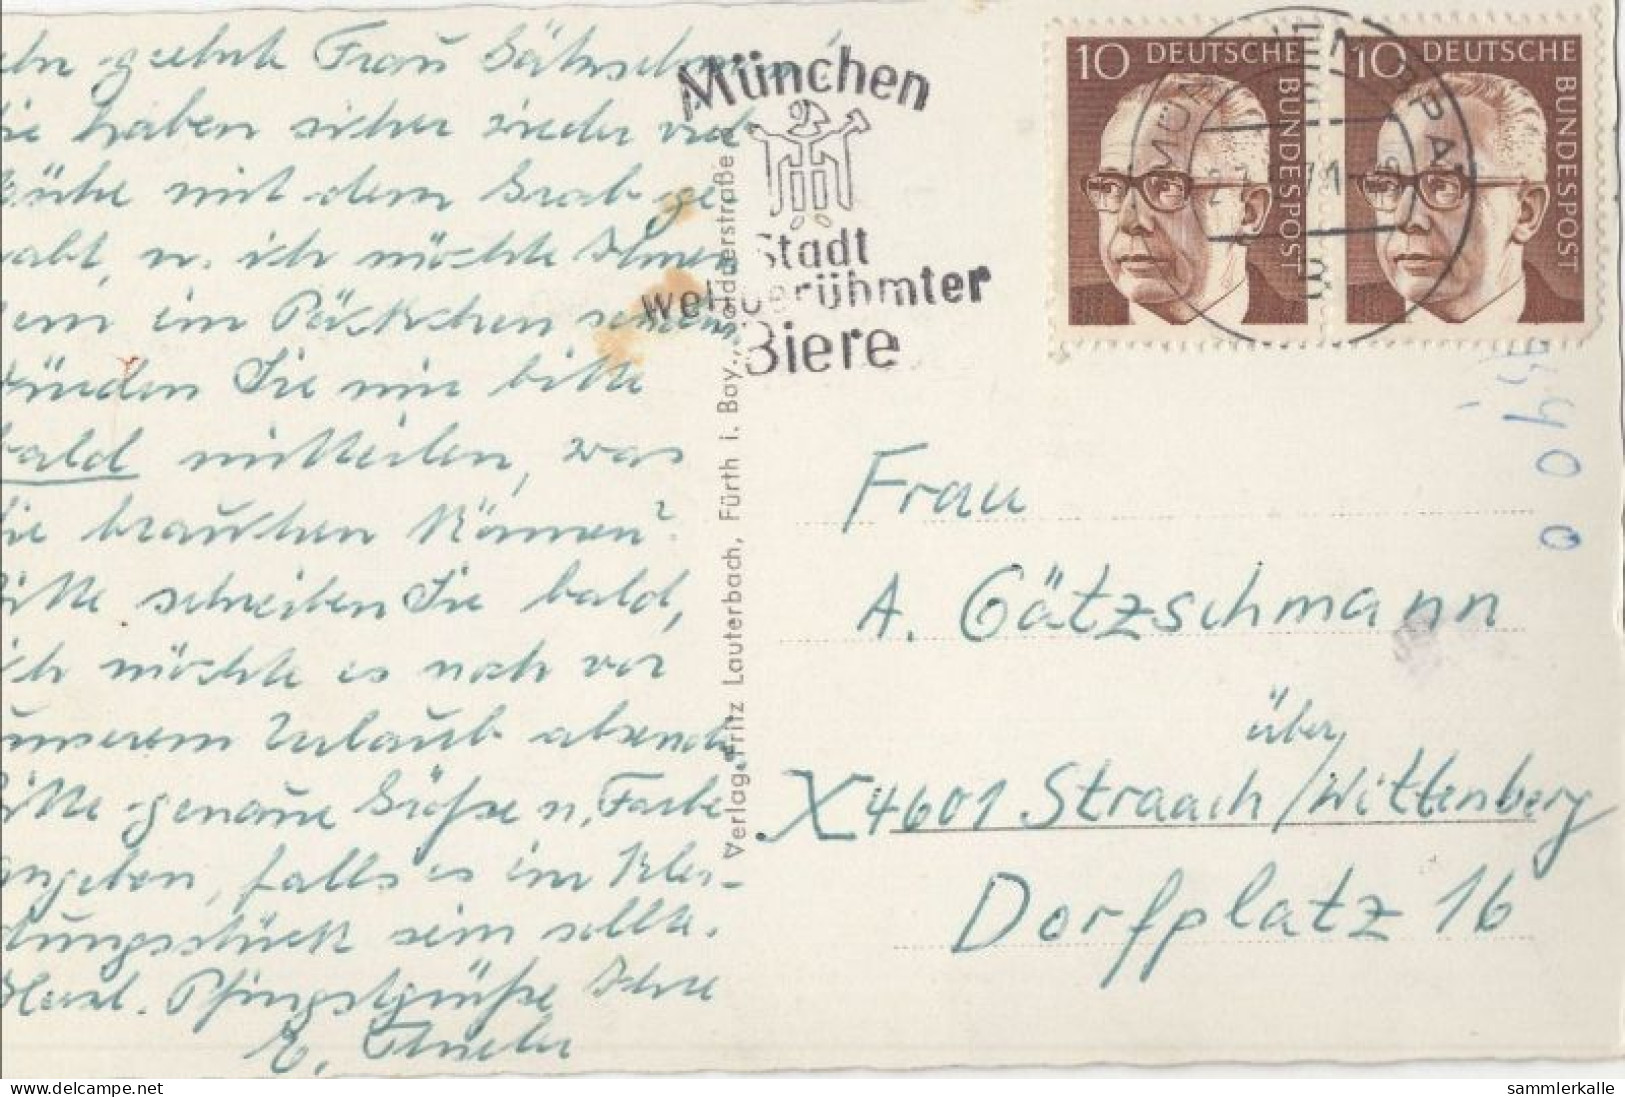 geehrte Frau Gätzschmann,
Sie haben sicher wieder viel
Mühe mit dem Grab ge-
habt, u. ich möchte Ihnen
gern ein Päckchen senden,
würden Sie mir bitte
bald mitteilen, was
Sie brauchen können?
Bitte schreiben Sie bald,
ich möchte es noch vor
unserem Urlaub absenden
Bitte genaue Größe u. Farbe
angeben, falls es ein Klei-
dungsstück sein sollte.
Herzl. Pfingstgrüße Ihre
E.
München
Stadt
weltberühmter
Biere
Verlag Fritz Lauterbach, Fürth i. Bay.,
10 DEUTSCHE BUNDESPOST
10 DEUTSCHE BUNDESPOST
Frau
A. Gätzschmann
über
X4601 Straach/Wittenberg
Dorfplatz 16
delcampe.net
sammlerkalle